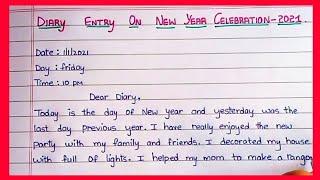 DIARY ENTRY ON NEW YEAR CELEBRATION-2021.
Date : 1/1/2021
Day : friday
Time : 10 pm
Dear Diary.
Today is the day of New year and yesterday was the
last day previous year. I have really enjoyed the new
party with my family and friends. I decorated my house
with full of lights. I helped my mom to make a rangoy